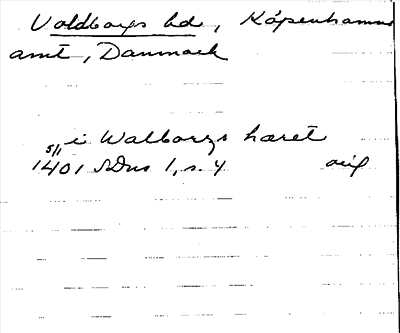 Voldborgs hd, Köpenhamns
amt, Danmark
i Walborgs hæret
5/1
1401 SDns 1, s. 4 orig